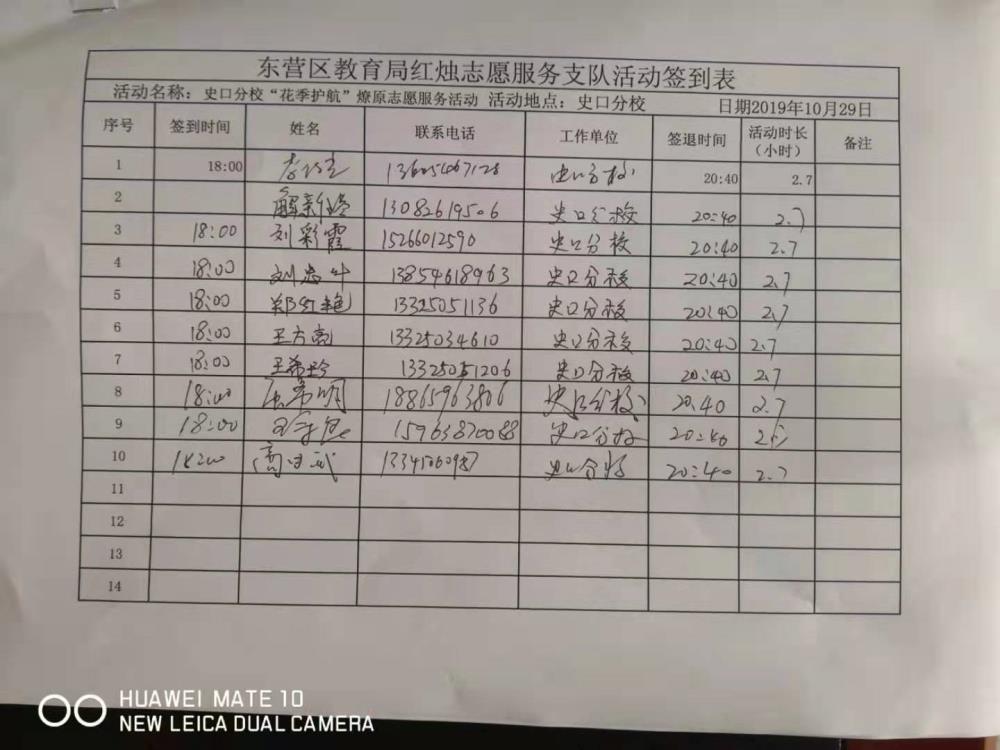 东营区教育局红烛志愿服务支队活动签到表
活动名称：史口分校“花季护航”燎原志愿服务活动 活动地点：史口分校 日期2019年10月29日
序号 签到时间 姓名 联系电话 工作单位 签退时间 活动时长（小时） 备注
1 18:00 史口分校 20:40 2.7
2 13082619506 史口分校 20:40 2.7
3 18:00 刘彩霞 15266012590 史口分校 20:40 2.7
4 18:00 13854618963 史口分校 20:40 2.7
5 18:00 郑红艳 13325051136 史口分校 20:40 2.7
6 18:00 王方亮 13325034610 史口分校 20:40 2.7
7 18:00 王希玲 13325051206 史口分校 20:40 2.7
8 18:00 18865963806 史口分校 20:40 2.7
9 18:00 15963870088 史口分校 20:40
10 18:00 史口分校 20:40 2.7
11
12
13
14
HUAWEI MATE 10
NEW LEICA DUAL CAMERA